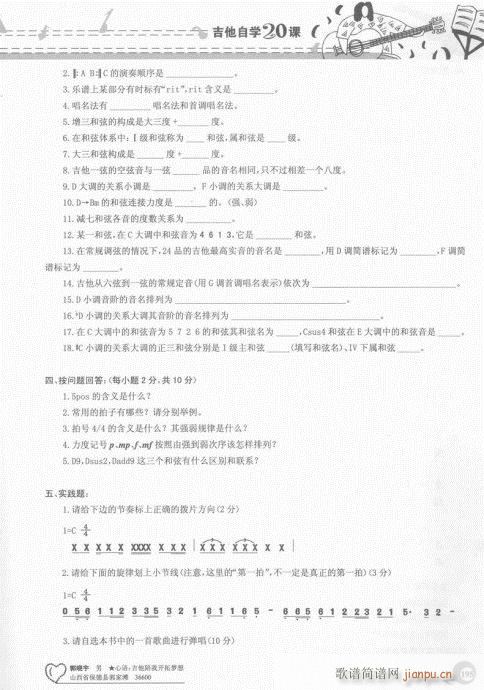 吉他自学20课
2.‖:A B:‖C的演奏顺序是__________。
3.乐谱上某部分有时标有"rit",rit含义是________。
4.唱名法有________唱名法和首调唱名法。
5.增三和弦的构成是大三度+______度。
6.在和弦体系中:Ⅰ级和弦称为____和弦,属和弦是____级。
7.大三和弦构成是______度+______度。
8.吉他一弦的空弦音与一弦______品的音名相同,只不过相差一个八度。
9.D大调的关系小调是________、F小调的关系大调是________。
10.D→Bm的和弦连接力度是______的。(强、弱)
11.减七和弦各音的度数关系为__________。
12.某一和弦,在C大调中和弦音为4 6 1 3,它是________和弦。
13.在常规调弦的情况下,24品的吉他最高实音的音名是________,用D调简谱标记为________,F调简
谱标记为________。
14.吉他从六弦到一弦的常规定音(用G调首调唱名表示)依次为__________________________。
15.D小调音阶的音名排列为__________________________。
16.♭D小调的关系大调其音阶的音名排列为__________________________。
17.在C大调中的和弦音为5 7 2 6的和弦其和弦名为_____,Csus4和弦在E大调中的和弦音是____。
18.#C小调的关系大调的正三和弦分别是I级主和弦_____(填写和弦名)、IV下属和弦_____。
四、按问题回答:(每小题2分,共10分)
1.5pos的含义是什么?
2.常用的拍子有哪些?请分别举例。
3.拍号4/4的含义是什么?其强弱规律是什么?
4.力度记号p、mp、f、mf按照由强到弱次序该怎样排列?
5.D9,Dsus2,Dadd9这三个和弦有什么区别和联系?
五、实践题:
1.请给下边的节奏标上正确的拨片方向(2分)
1=C 4/4
X X X X X XXXX X X X | X X X X X X X X X
2.请给下面的旋律划上小节线(注意,这里的"第一拍",不一定是真正的第一拍)(3分)
1=C 4/4
0 5 6 1 1 2 3 3 5 3 2 1 6 1 1 6 5 - 6 6 5 6 1 2 2 3 2 1 5· 3 2 -
3.请自选本书中的一首歌曲进行弹唱(10分)
郭晓宇 男 ★心语:吉他陪我开拓梦想
山西省保德县郭家滩 36600
195
歌谱简谱网
jianpu.cn